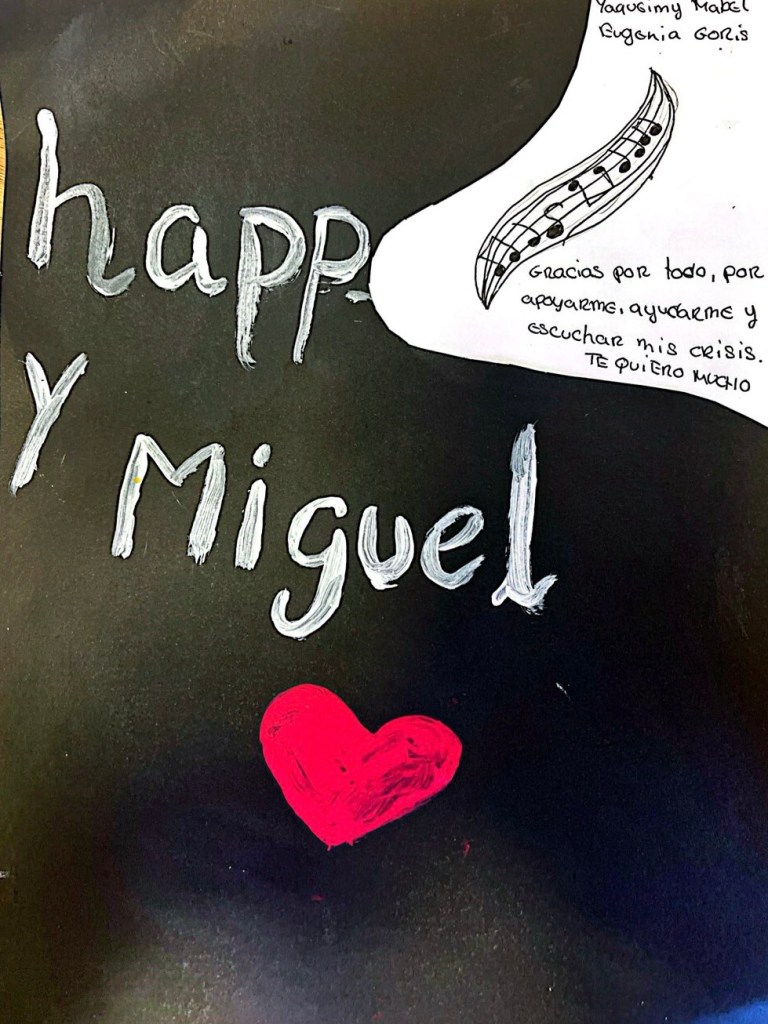 Yaqueimy Mabel
Eugenia Goris
Gracias por todo, por
apoyarme, ayudarme y
escuchar mis crisis.
TE QUIERO MUCHO
happ-
y
Miguel